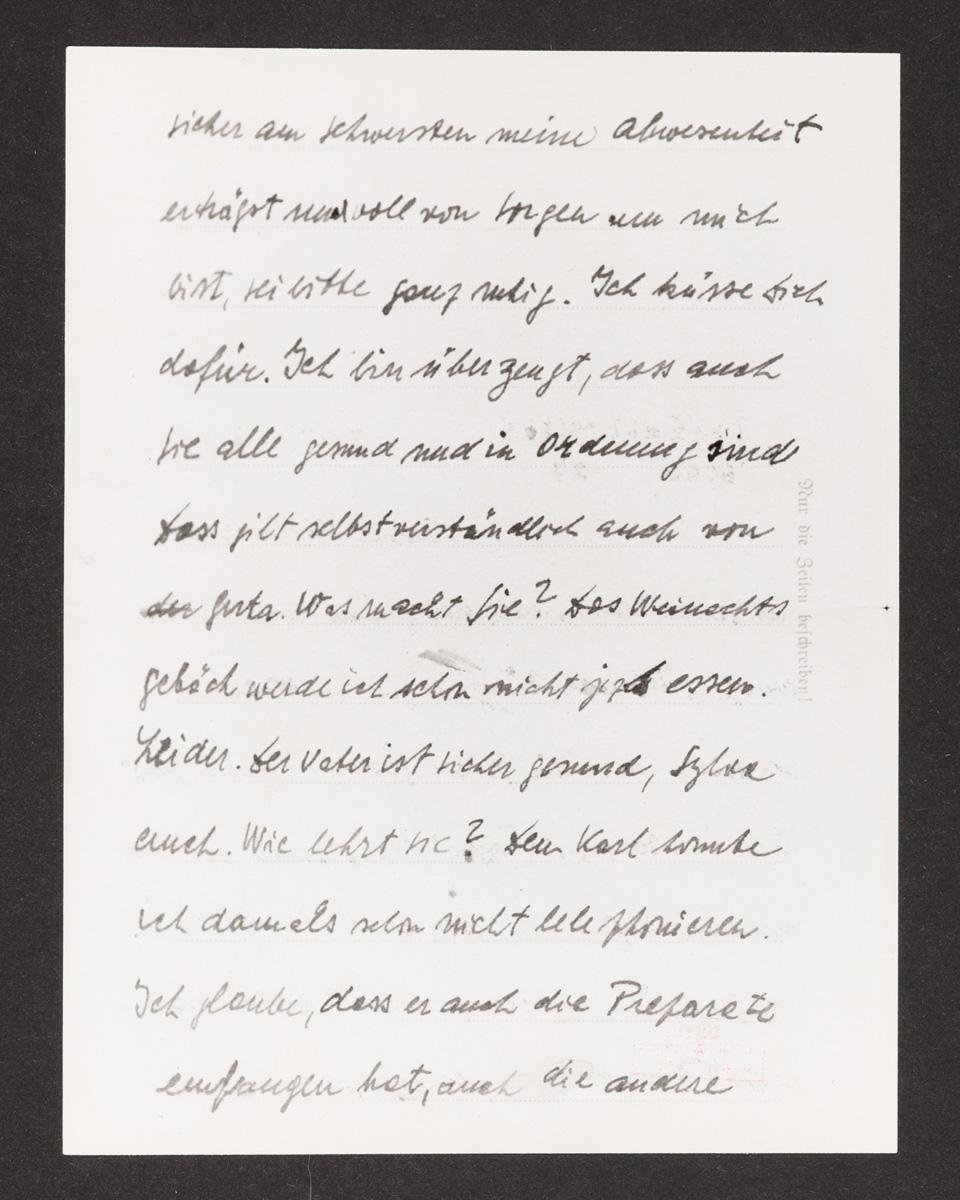 sicher am schwersten meine Abwesenheit
erträgst und voll von Sorgen um mich
bist, sei bitte ganz ruhig. Ich küsse Dich
dafür. Ich bin überzeugt, dass auch
Sie alle gesund und in Ordnung sind
Dass gilt selbstverständlich auch von
der Gerta. Was macht Sie? Das Weinachts
gebäck werde ich schon nicht jetzt essen.
Leider. Der Vater ist sicher gesund, Sylva
auch. Wie lehrt sie? Dem Karl konnte
ich damals schon nicht telephonieren.
Ich glaube, dass er auch die Preparate
empfangen hat, auch die andere
Nur die Zeilen beschreiben!